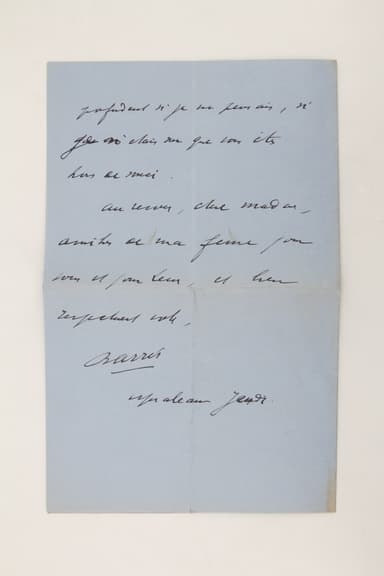 profondent si je ne pensais, si
je n'étais sûr que vous êtes
hors de souci.
au revoir, chère madame,
amitiés de ma femme pour
vous et pour Leur, et bien
respectueux vôtre,
Barrès
Mirabeau Jeudi